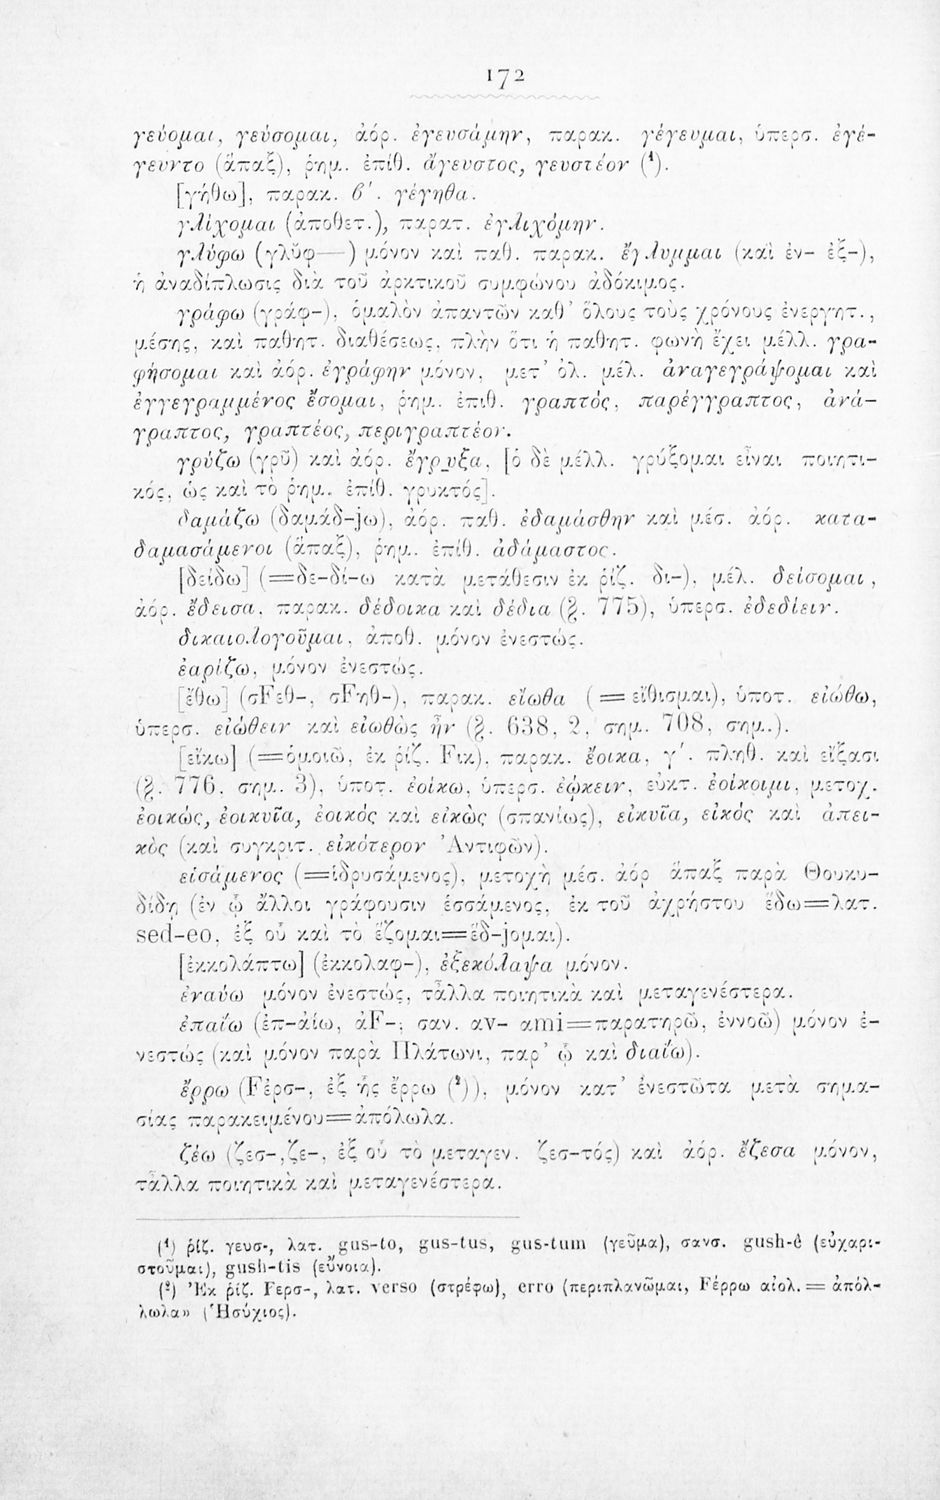 172
γεύομαι, γεύσομαι, ἀόρ. ἐγευσάμην, παρακ. γέγευμαι, ὑπερσ. ἐγέ-
γευντο (ἅπαξ), ῥημ. ἐπίθ. ἄγευστος, γευστέον (¹).
[γήθω], παρακ. β΄. γέγηθα.
γλίχομαι (ἀποθετ.), παρατ. ἐγλιχόμην.
γλύφω (γλῠφ—) μόνον καὶ παθ. παρακ. ἔγλυμμαι (καὶ ἐν- ἐξ-),
ἡ ἀναδίπλωσις διὰ τοῦ ἀρκτικοῦ συμφώνου ἀδόκιμος.
γράφω (γράφ-), ὁμαλὸν ἁπαντῶν καθ' ὅλους τοὺς χρόνους ἐνεργητ.,
μέσης, καὶ παθητ. διαθέσεως, πλὴν ὅτι ἡ παθητ. φωνὴ ἔχει μέλλ. γρα-
φήσομαι καὶ ἀόρ. ἐγράφην μόνον, μετ' ὀλ. μέλ. ἀναγεγράψομαι καὶ
ἐγγεγραμμένος ἔσομαι, ῥημ. ἐπιθ. γραπτός, παρέγγραπτος, ἀνά-
γραπτος, γραπτέος, περιγραπτέον.
γρύζω (γρῦ) καὶ ἀόρ. ἔγρυξα, [ὁ δὲ μέλλ. γρύξομαι εἶναι ποιητι-
κός, ὡς καὶ τὸ ῥημ. ἐπίθ. γρυκτός].
δαμάζω (δαμάδ-jω), ἀόρ. παθ. ἐδαμάσθην καὶ μέσ. ἀόρ. κατα-
δαμασάμενοι (ἅπαξ), ῥημ. ἐπίθ. ἀδάμαστος.
[δείδω] (=δε-δί-ω κατὰ μετάθεσιν ἐκ ῥίζ. δι-), μέλ. δείσομαι,
ἀόρ. ἔδεισα, παρακ. δέδοικα καὶ δέδια (§. 775), ὑπερσ. ἐδεδίειν.
δικαιολογοῦμαι, ἀποθ. μόνον ἐνεστώς.
ἐαρίζω, μόνον ἐνεστώς.
[ἔθω] (σFεθ-, σFηθ-), παρακ. εἴωθα (=εἴθισμαι), ὑποτ. εἰώθω,
ὑπερσ. εἰώθειν καὶ εἰωθὼς ἦν (§. 638, 2, σημ. 708, σημ.).
[εἴκω] (=ὁμοιῶ, ἐκ ῥίζ. Fικ), παρακ. ἔοικα, γ΄. πληθ. καὶ εἴξασι
(§. 776, σημ. 3), ὑποτ. ἐοίκω, ὑπερσ. ἐῴκειν, εὐκτ. ἐοίκοιμι, μετοχ.
ἐοικώς, ἐοικυῖα, ἐοικός καὶ εἰκὼς (σπανίως), εἰκυῖα, εἰκός καὶ ἀπει-
κὸς (καὶ συγκριτ. εἰκότερον Ἀντιφῶν).
εἱσάμενος (=ἱδρυσάμενος), μετοχὴ μέσ. ἀόρ ἅπαξ παρὰ Θουκυ-
δίδῃ (ἐν ᾧ ἄλλοι γράφουσιν ἑσσάμενος, ἐκ τοῦ ἀχρήστου ἕδω=λατ.
sed-eo, ἐξ οὗ καὶ τὸ ἕζομαι=ἕδ-jομαι).
[ἐκκολάπτω] (ἐκκολαφ-), ἐξεκόλαψα μόνον.
ἐναύω μόνον ἐνεστώς, τἆλλα ποιητικὰ καὶ μεταγενέστερα.
ἐπαΐω (ἐπ-αίω, ἀF-; σαν. av- ami=παρατηρῶ, ἐννοῶ) μόνον ἐ-
νεστώς (καὶ μόνον παρὰ Πλάτωνι, παρ' ᾧ καὶ διαΐω).
ἔρρω (Fέρσ-, ἐξ ἧς ἔρρω (²)), μόνον κατ' ἐνεστῶτα μετὰ σημα-
σίας παρακειμένου=ἀπόλωλα.
ζέω (ζεσ-,ζε-, ἐξ οὗ τὸ μεταγεν. ζεσ-τός) καὶ ἀόρ. ἔζεσα μόνον,
τἆλλα ποιητικὰ καὶ μεταγενέστερα.
(¹) ῥίζ. γευσ-, λατ. gus-to, gus-tus, gus-tum (γεῦμα), σανσ. gush-é (εὐχαρι-
στοῦμαι), gush-tis (εὔνοια).
(²) Ἐκ ῥίζ. Fερσ-, λατ. verso (στρέφω), erro (περιπλανῶμαι, Fέρρω αἰολ. = ἀπόλ-
λωλα» (Ἡσύχιος).